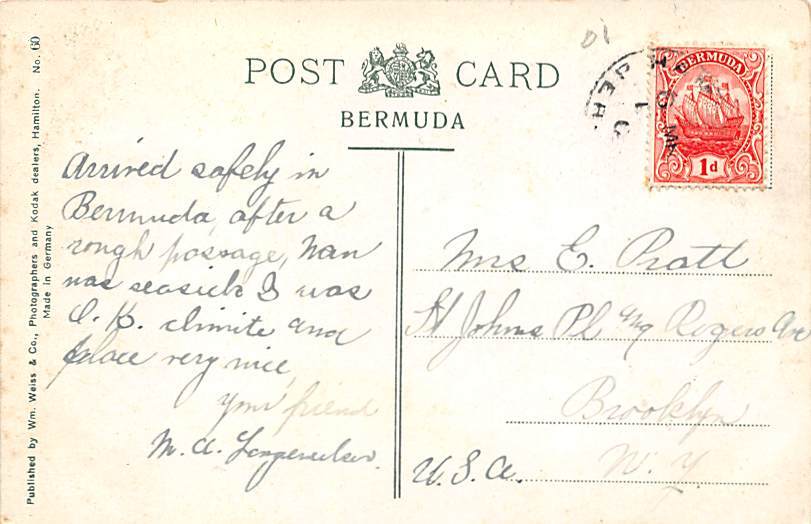 POST CARD
BERMUDA
Arrived safely in
Bermuda after a
rough passage, Nan
was seasick I was
O.K. climite and
place very nice,
your friend
M. A.
Mrs E. Pratt
St Johns Pl Rogers Ave
Brooklyn
N. Y
U.S.A.
BERMUDA
1d
Published by Wm. Weiss & Co., Photographers and Kodak dealers, Hamilton. No. 60
Made in Germany